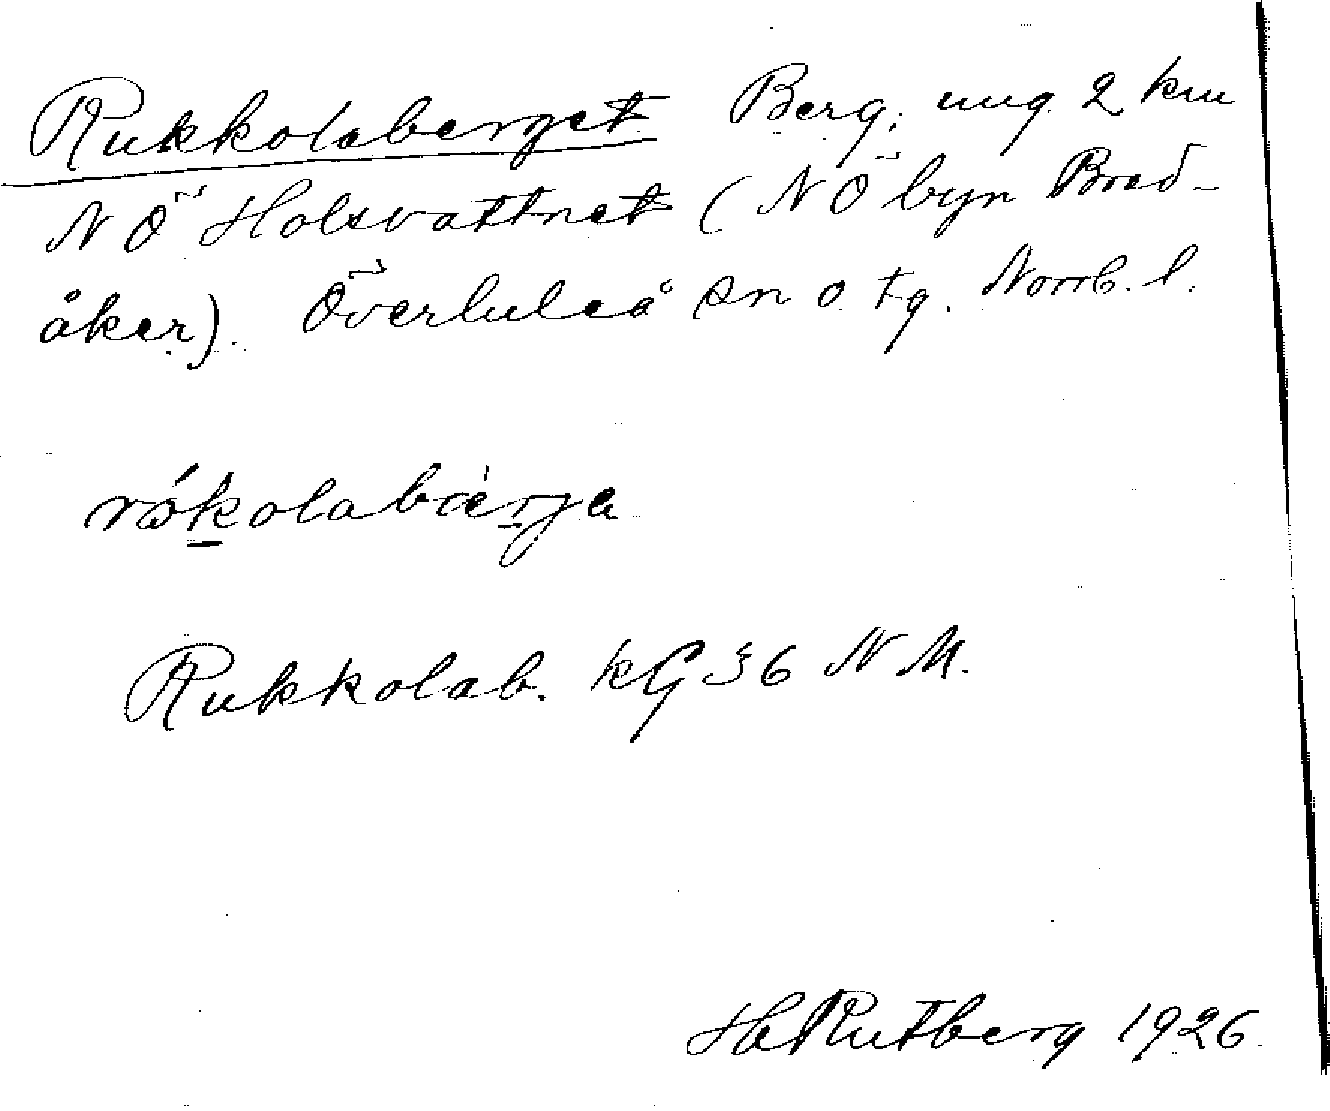 Rukkolaberget Berg, ung. 2 km
NÖ Holsvattnet (NÖ byn Bred-
åker). Överluleå sn o. tg. Norrb. l.
rókolabærja
Rukkolab. kG 36 NM.
H Rutberg 1926